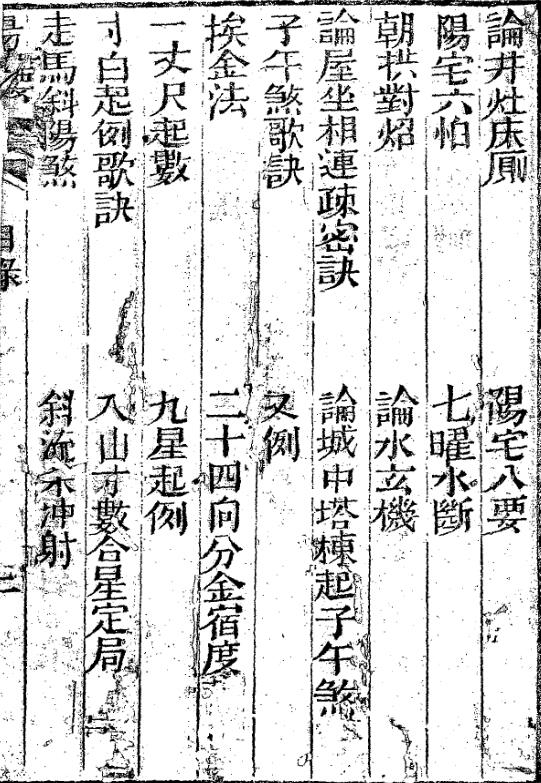 論井灶床厠
陽宅八要
陽宅六怕
七曜水斷
朝拱對炤
論水玄機
論屋坐相連疎密訣
論城中塔棟起子午煞
子午煞歌訣
又例
挨金法
二十四向分金宿度
一丈尺起數
九星起例
寸白起例歌訣
入山寸數合星定局
走馬斜陽煞
斜流禾冲射
目錄
二